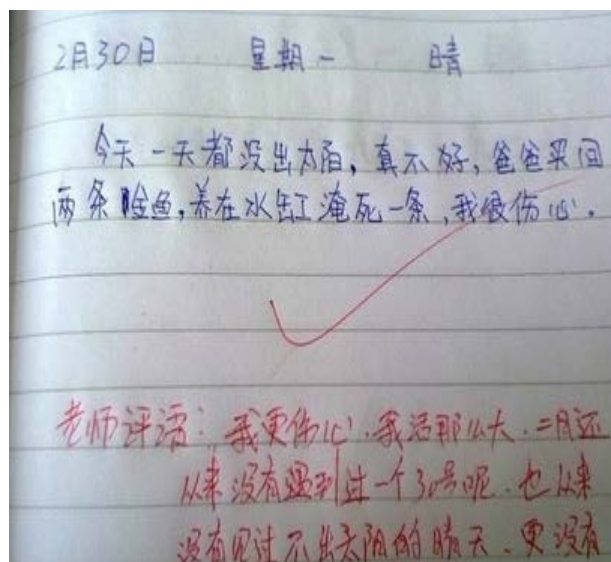 2月30日 星期一 晴
今天一天都没出太阳，真不好，爸爸买回
两条金鱼，养在水缸淹死一条，我很伤心。
老师评语：我更伤心，我活那么大，二月还
从来没有遇到过一个30号呢，也从来
没有见过不出太阳的晴天，更没有